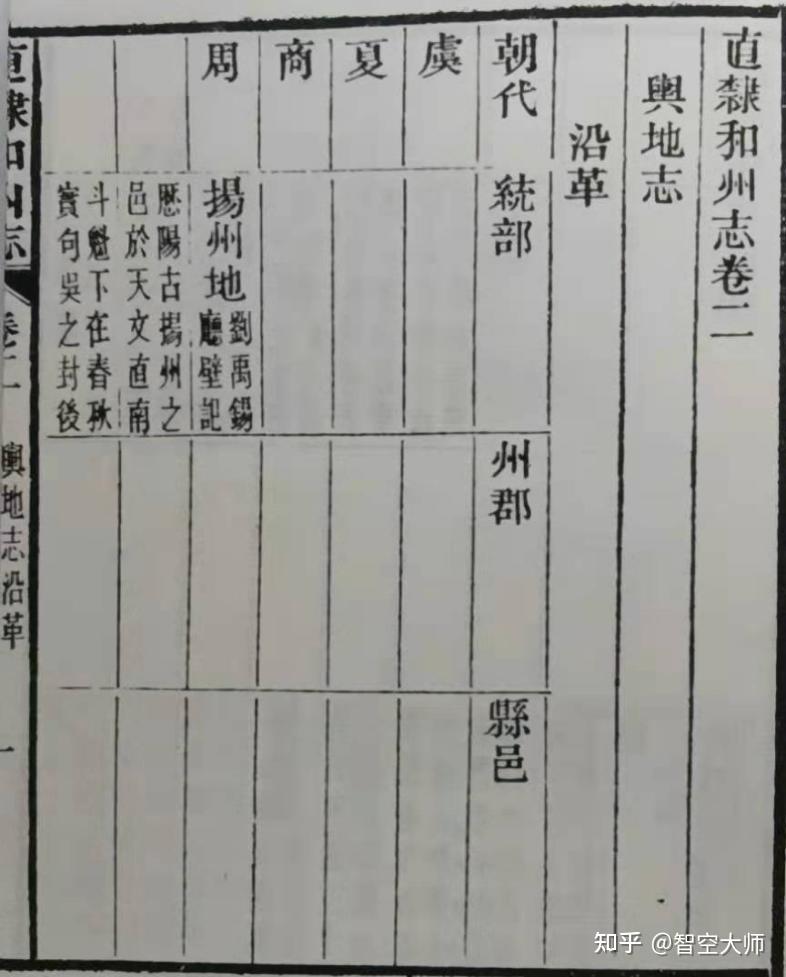 直隸和州志卷二
輿地志
沿革
朝代
統部
州郡
縣邑
虞
夏
商
周
揚州地
劉禹錫
廳壁記
歷陽古揚州之
邑於天文直南
斗魁下在春秋
實句吳之封後
直隸和州志
卷二
輿地志沿革
一
知乎 @智空大师